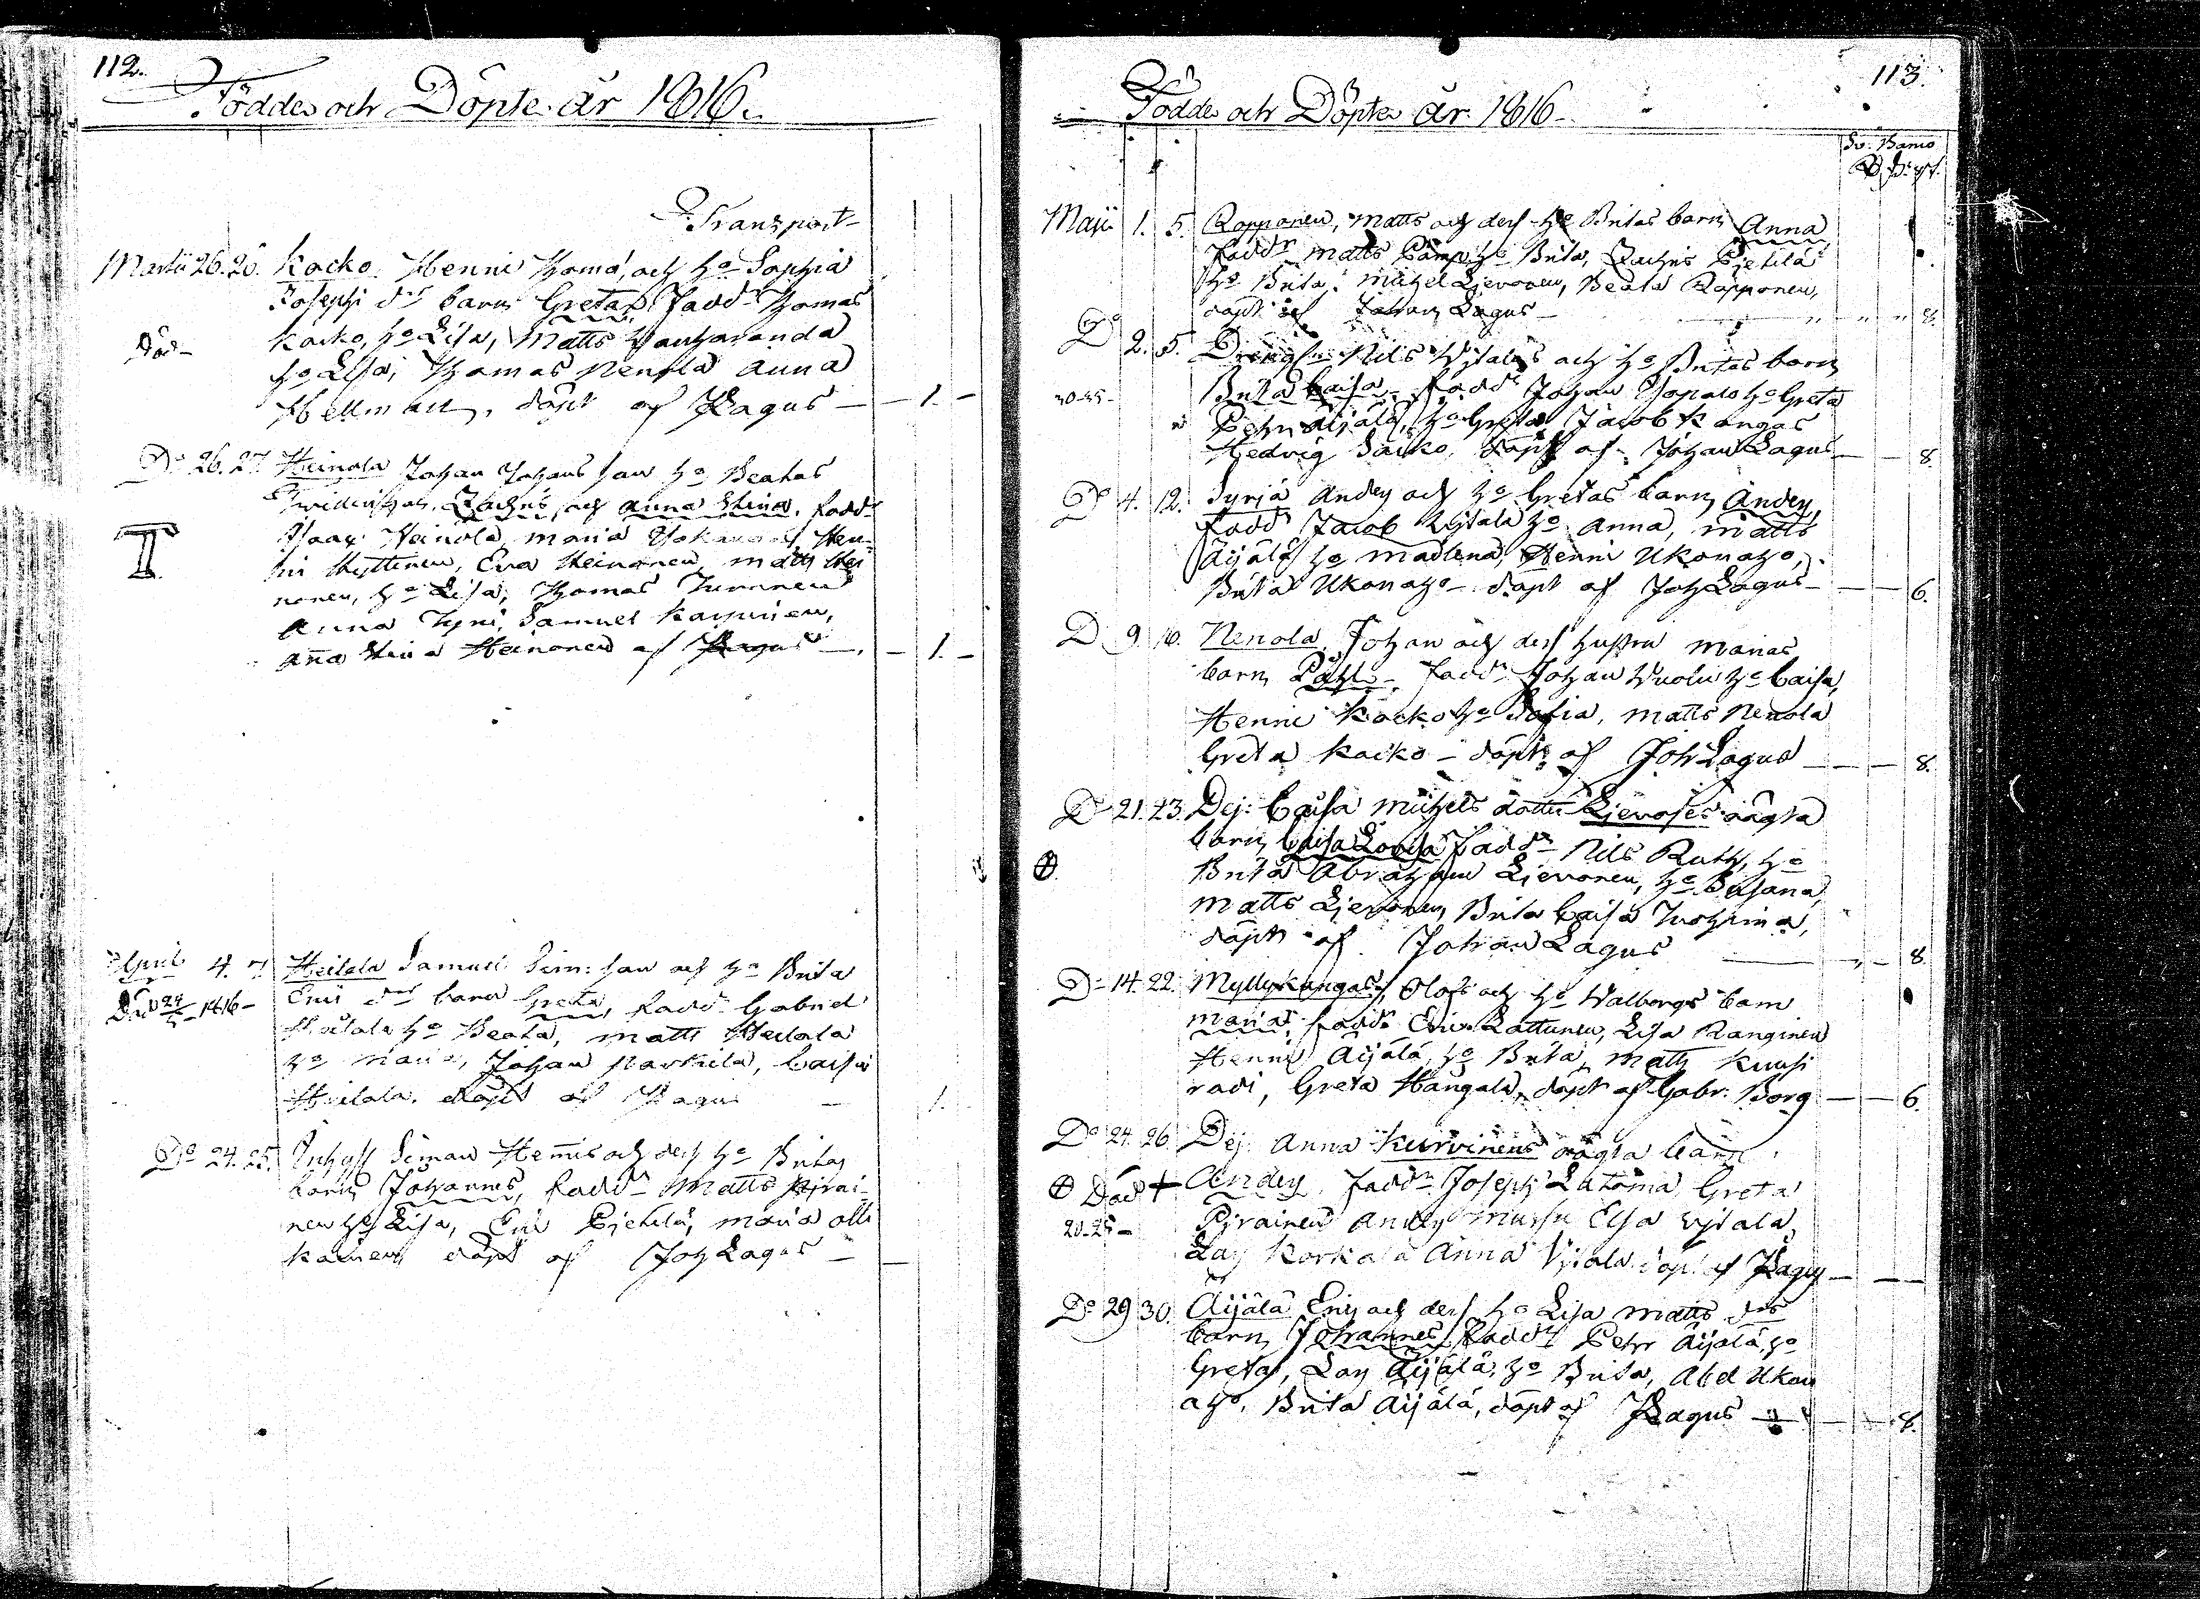 112.
Födde och Döpte år 1816.
Transport
Martii 26. 26. Kacko Henric Thomæ, och ho Sophia
Josephi dr barn Greta, Fadd. Thomas
Död Kacko, ho Lisa, Matts Vanharanda
ho Lisa, Thomas Nenola Anna
Hellman, döpt af Lagus — 1. —
Do 26. 27 Heinola Johan Johans son ho Beatas
Zachris, och Anna Stina. fadd.
Isaac Heinola, Maria Hen-
ric Hyttinen, Eva Heinonen, Matts Hei
nonen, ho Lisa, Thomas Turunen
Anna Tyni, Samuel Karjuinen,
Aña Stina Heinonen af Lagus — 1. —
April 4. 7 Heilala Samuel Sim: son och ho Brita
Död 24/5 1816 — Erici dr barn Greta, fadd. Gabriel
ho Beata, Matts Heilala
ho Maria, Johan Markila, Caisa
Heilala. döpt af Lagus — 1.
Do 24. 25. Inhys Simon Heñris och dess ho Britas
barn Johannes, fadd. Matts Pirai-
nen ho Lisa, Eric Pietilä, Maria Olli
kainen döpt af Joh Lagus —
113.
Födde och Döpte år 1816
Sv. Banco
Maji 1. 5. Ropponen, Matts och dess ho Britas barn Anna
Fadd. Matts ho Brita, Zachris Pietilä
ho Brita, Michel Lievonen, Beata Ropponen,
döpt af Johan Lagus — 8.
Do 2. 5. Nils Ujtalos och ho Britas barn
30-35 - Brita Caisa, fadd. Johan ho Greta
Pehr Äijälä, ho Greta Jacob Kangas
Hedvig döpt af Johan Lagus — 8.
Do 4. 12. Syrjä Anders och ho Gretas barn Anders,
fadd. Jacob Ujtala ho Anna, Matts
Äijälä ho Madlena, Henric Ukonaho,
Brita Ukonaho — döpt af Joh Lagus — 6.
D 9. 10. Nenola, Johan och dess hustru Marias
barn Påhl —, fadd. Johan Vuolu ho Caisa,
Henric Kacko ho Sofia, Matts Nenola
Greta Kacko — döpt af Joh Lagus — 8.
Do 21. 23. Dej: Caisa Michels dotter Lievoses oägta
barn Caisa Lovisa Fadd. Nils Ruth, ho
Brita Abraham Lievonen, ho Susana,
Matts Lievonen, Brita Caisa
döpt af Johan Lagus — 8
Do 14. 22. Myllykangas, Olofs och ho Walborgs barn
Maria, fadd. Eric Lattunen, Lisa Ranginen
Henric Äijälä, ho Brita, Matts Kuusi
radi, Greta Hangala, döpt af Gabr. Borg — 6.
Do 24. 26. Dej. Anna Kurvinens oägta barn
Död + Anders, Fadd. Joseph Greta
20-25 — Pirainen Anders Elsa Ujtala,
Lars Korkala Anna Ujtala döpt af Lagus —
Do 29 30. Äijälä Eric och dess ho Lisa Matts drs
barn Johannes, Fadd. Pehr Äijälä, ho
Greta, Lars Äijälä, ho Brita, Abel Ukon
aho, Brita Äijälä, döpt af Lagus — 8.